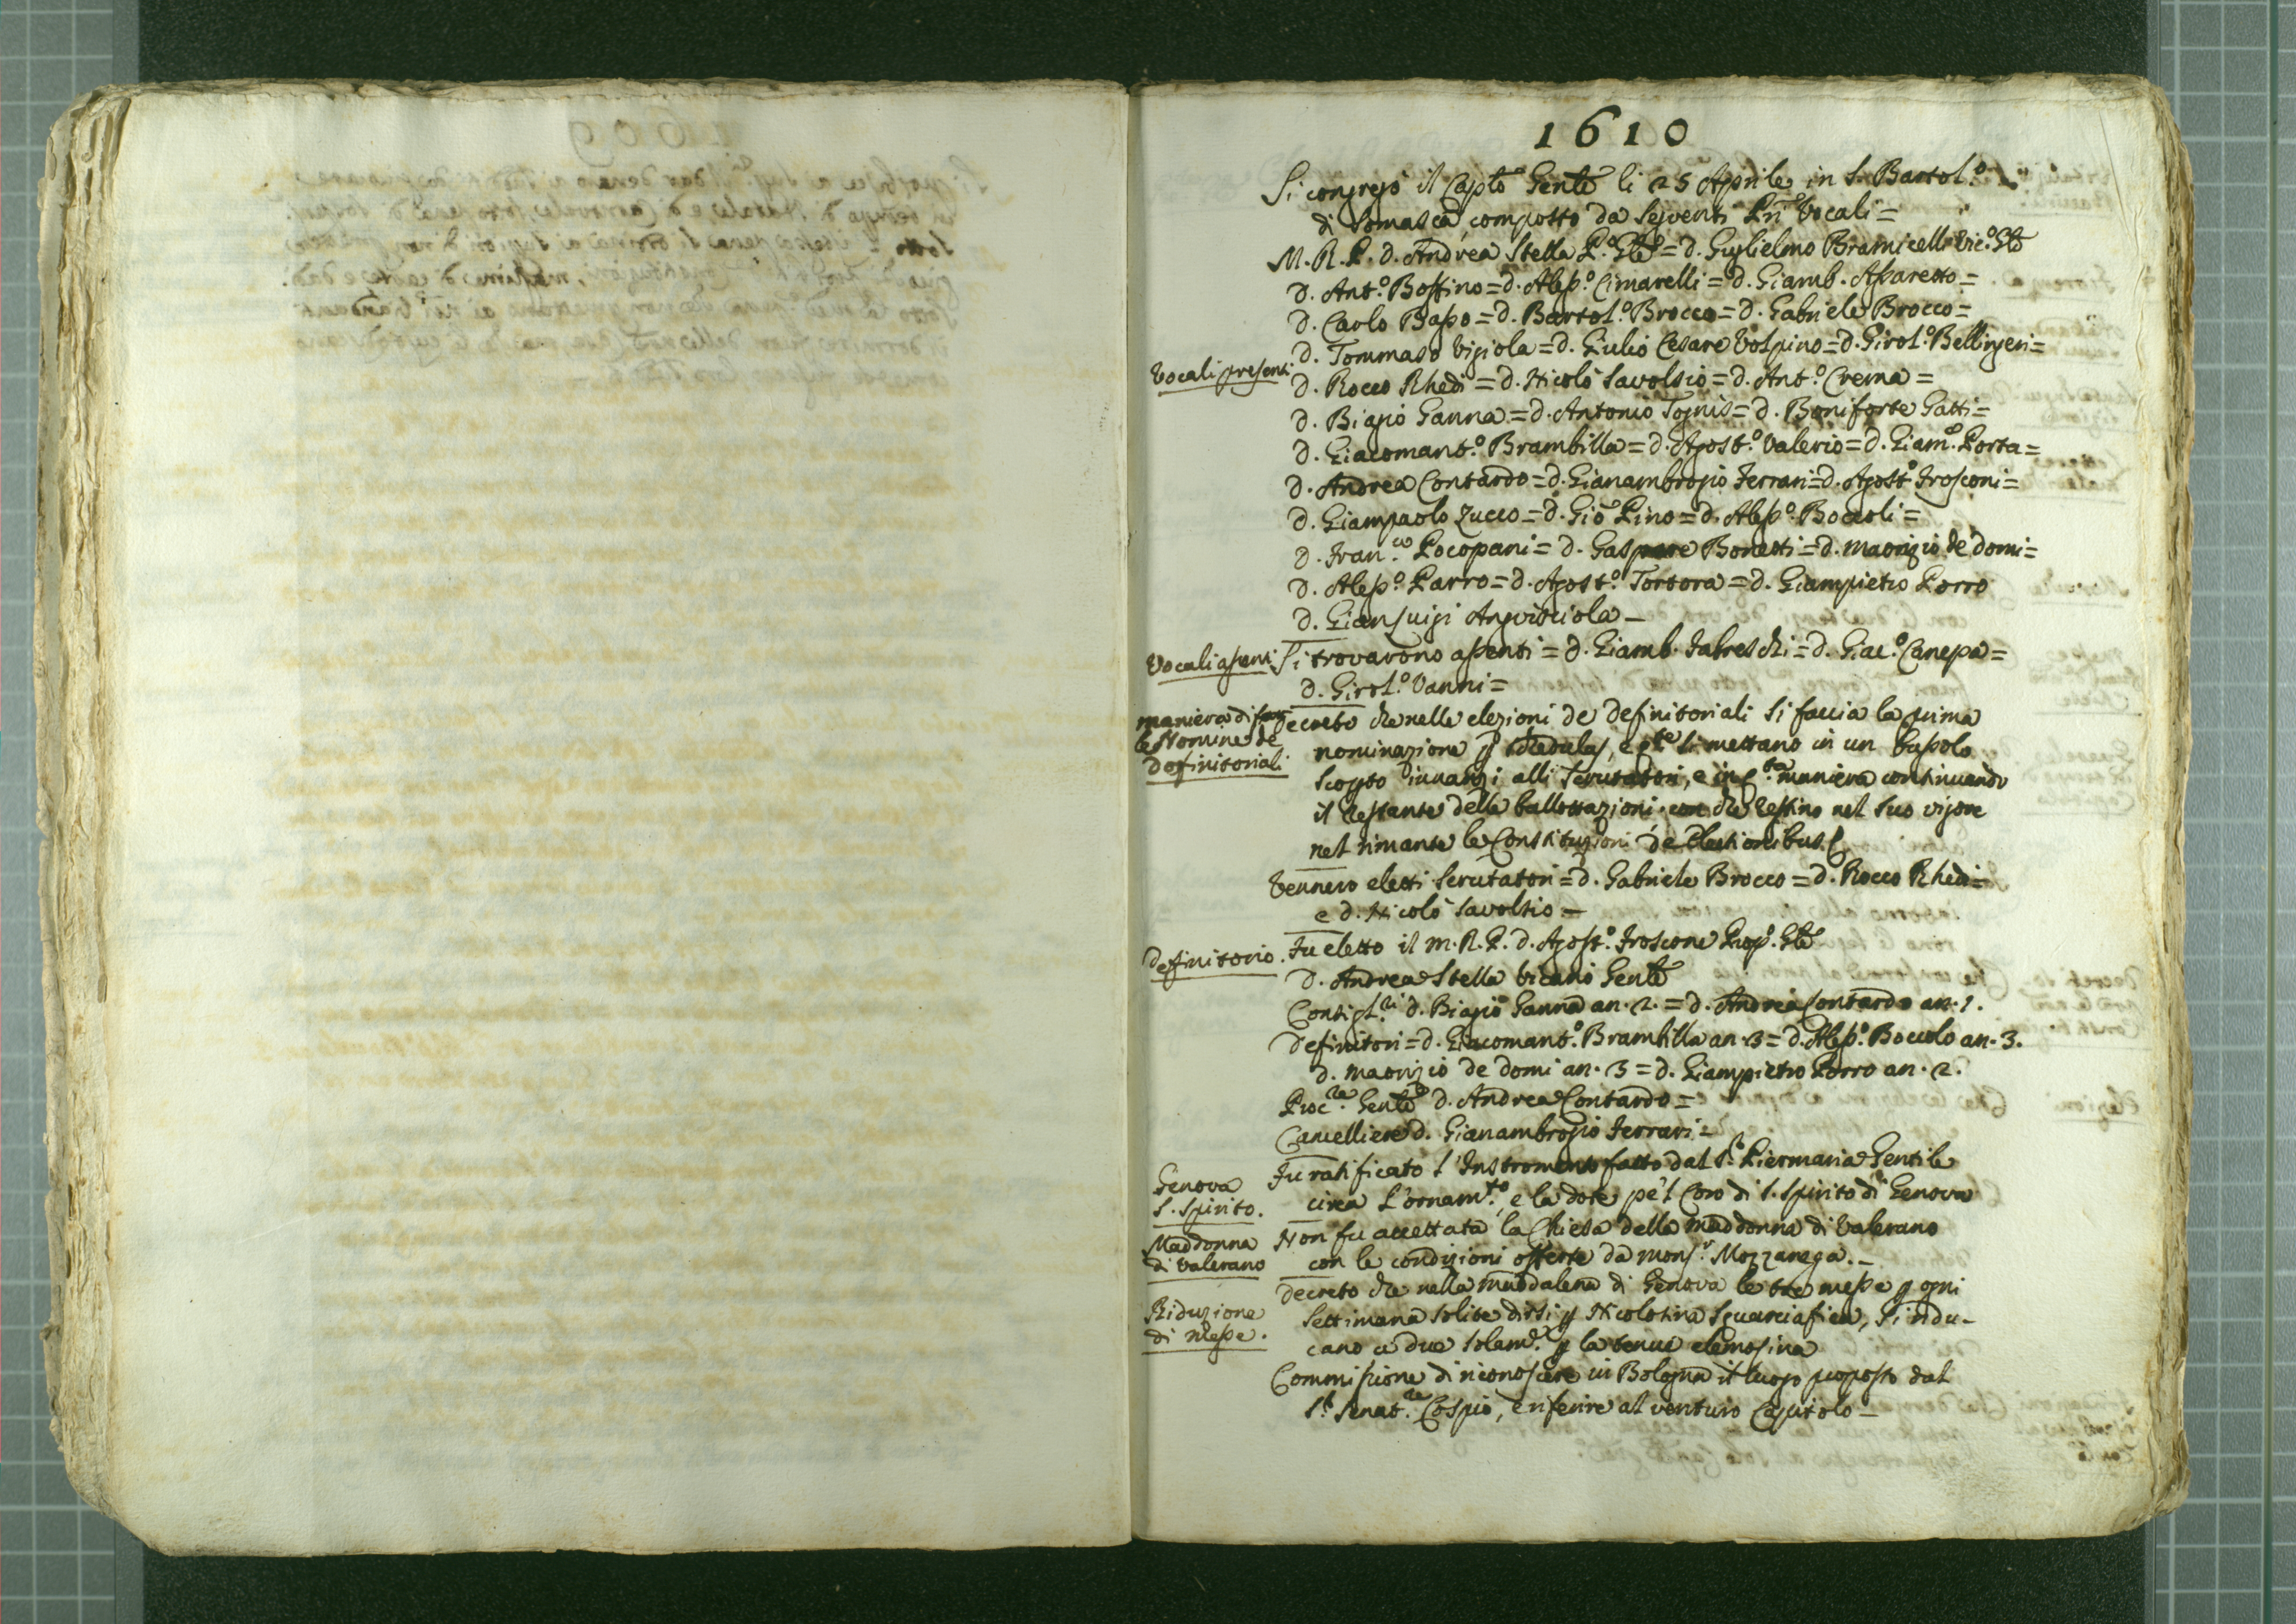 1610
Si congregò il Capto Genle li 25 Aprile in S. Bartol.o
di Somasca, composto da seguenti Pri Vocali =
M. R. P. d. Andrea Stella P. Gle = d. Guglielmo Bramicelli Vic.o Gle
d. Ant.o Bossino = d. Aless.o Cimarelli = d. Giamb. Assaretto =
d. Carlo Basso = d. Bartol.o Brocco = d. Gabriele Brocco =
d. Tommaso Vigiola = d. Giulio Cesare Volpino = d. Girol.o Bellingeri =
Vocali presenti
d. Rocco Rhedi = d. Nicolò Savolsio = d. Ant.o Crema =
d. Biagio Ganna = d. Antonio Tognis = d. Boniforte Gatti =
d. Giacomant.o Brambilla = d. Agost.o Valerio = d. Giam.o Porta =
d. Andrea Contardo = d. Gianambrogio Ferrari = d. Agost.o Frosconi =
d. Giampaolo Zucco = d. Gio Pino = d. Aless.o Boccoli =
d. Fran.co Pocopani = d. Gaspare Bonetti = d. Maorizio de domi =
d. Aless.o Parro = d. Agost.o Tortora = d. Giampietro Porro
d. Gianluigi Angvisciola -
Vocali assenti
Si trovarono assenti = d. Giamb. Fabreschi = d. Giac.o Canepa =
d. Girol.o Vanni =
maniera di far
le Nomine de
Definitoriali
Decreto che nelle elezioni de Definitoriali si faccia la prima
nominazione p schedulas, e qte si mettano in un bussolo
scopto innanzi alli scrutatori, e in q.ta maniera continuando
il restante delle ballottazioni che restino nel suo vigore
nel rimante le Constituzioni de Electionibus
Vennero eletti scrutatori = d. Gabriele Brocco = d. Rocco Rhedi =
e d. Nicolò Savolsio =
Definitorio.
Fu eletto il M. R. P. d. Agost.o Froscone Prep.o Gle
d. Andrea Stella Vicario Genle
Consigl.ri d. Biagio Ganna an. 2. = d. Andrea Contardo an. 1.
Definitori = d. Giacomant.o Brambilla an. 3 = d. Aless.o Boccolo an. 3.
d. Maorizio de domi an. 3 = d. Giampietro Porro an. 2.
Proc.re Genle d. Andrea Contardo =
Cancelliere d. Gianambrogio Ferrari =
Genova
S. Spirito.
Fu ratificato l'Instromento fatto dal S.r Piermaria Gentile
circa l'ornam.to, e la dote pe'l Coro di S. Spirito di Genova
Maddonna
di Valerano
Non fu accettata la Chiesa della Maddonna di Valerano
con le condizioni offerte da Mons.r Mozzanega. -
Riduzione
di Messe.
Decreto che nella Maddalena di Genova le tre messe p ogni
settimana solite dirsi p Nicolosina Squarciafica, si ridu-
cano a due solam.e p la tenue elemosina
Commissione di riconoscere in Bologna il luogo proposto dal
S.r Senat.re Cospio, e riferire al venturo Capitolo -